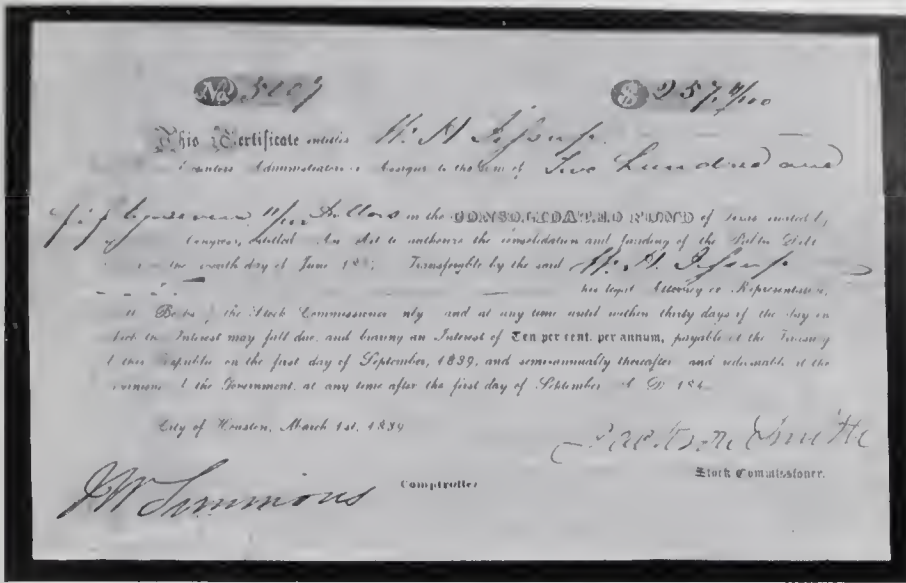 No $ 257, 11/100
This Certificate entitles W. H.
Executors Administrators or Assigns to the Sum of Two hundred and
fifty seven 11/100 Dollars in the CONSOLIDATED FUND of Texas created by
Congress, entitled An Act to authorize the consolidation and funding of the Public Debt
the day of June Transferable by the said W. H.
his legal Attorney or Representative,
Books of the Stock Commissioner only and at any time until within thirty days of the day on
Interest may fall due, and bearing an Interest of Ten per cent. per annum, payable at the Treasury
Republic on the first day of September, 1839, and semi-annually thereafter and redeemable at the
of the Government, at any time after the first day of September A. D.
City of Houston, March 1st, 1839
Jackson Smith
Stock Commissioner.
Comptroller
JW Simmons